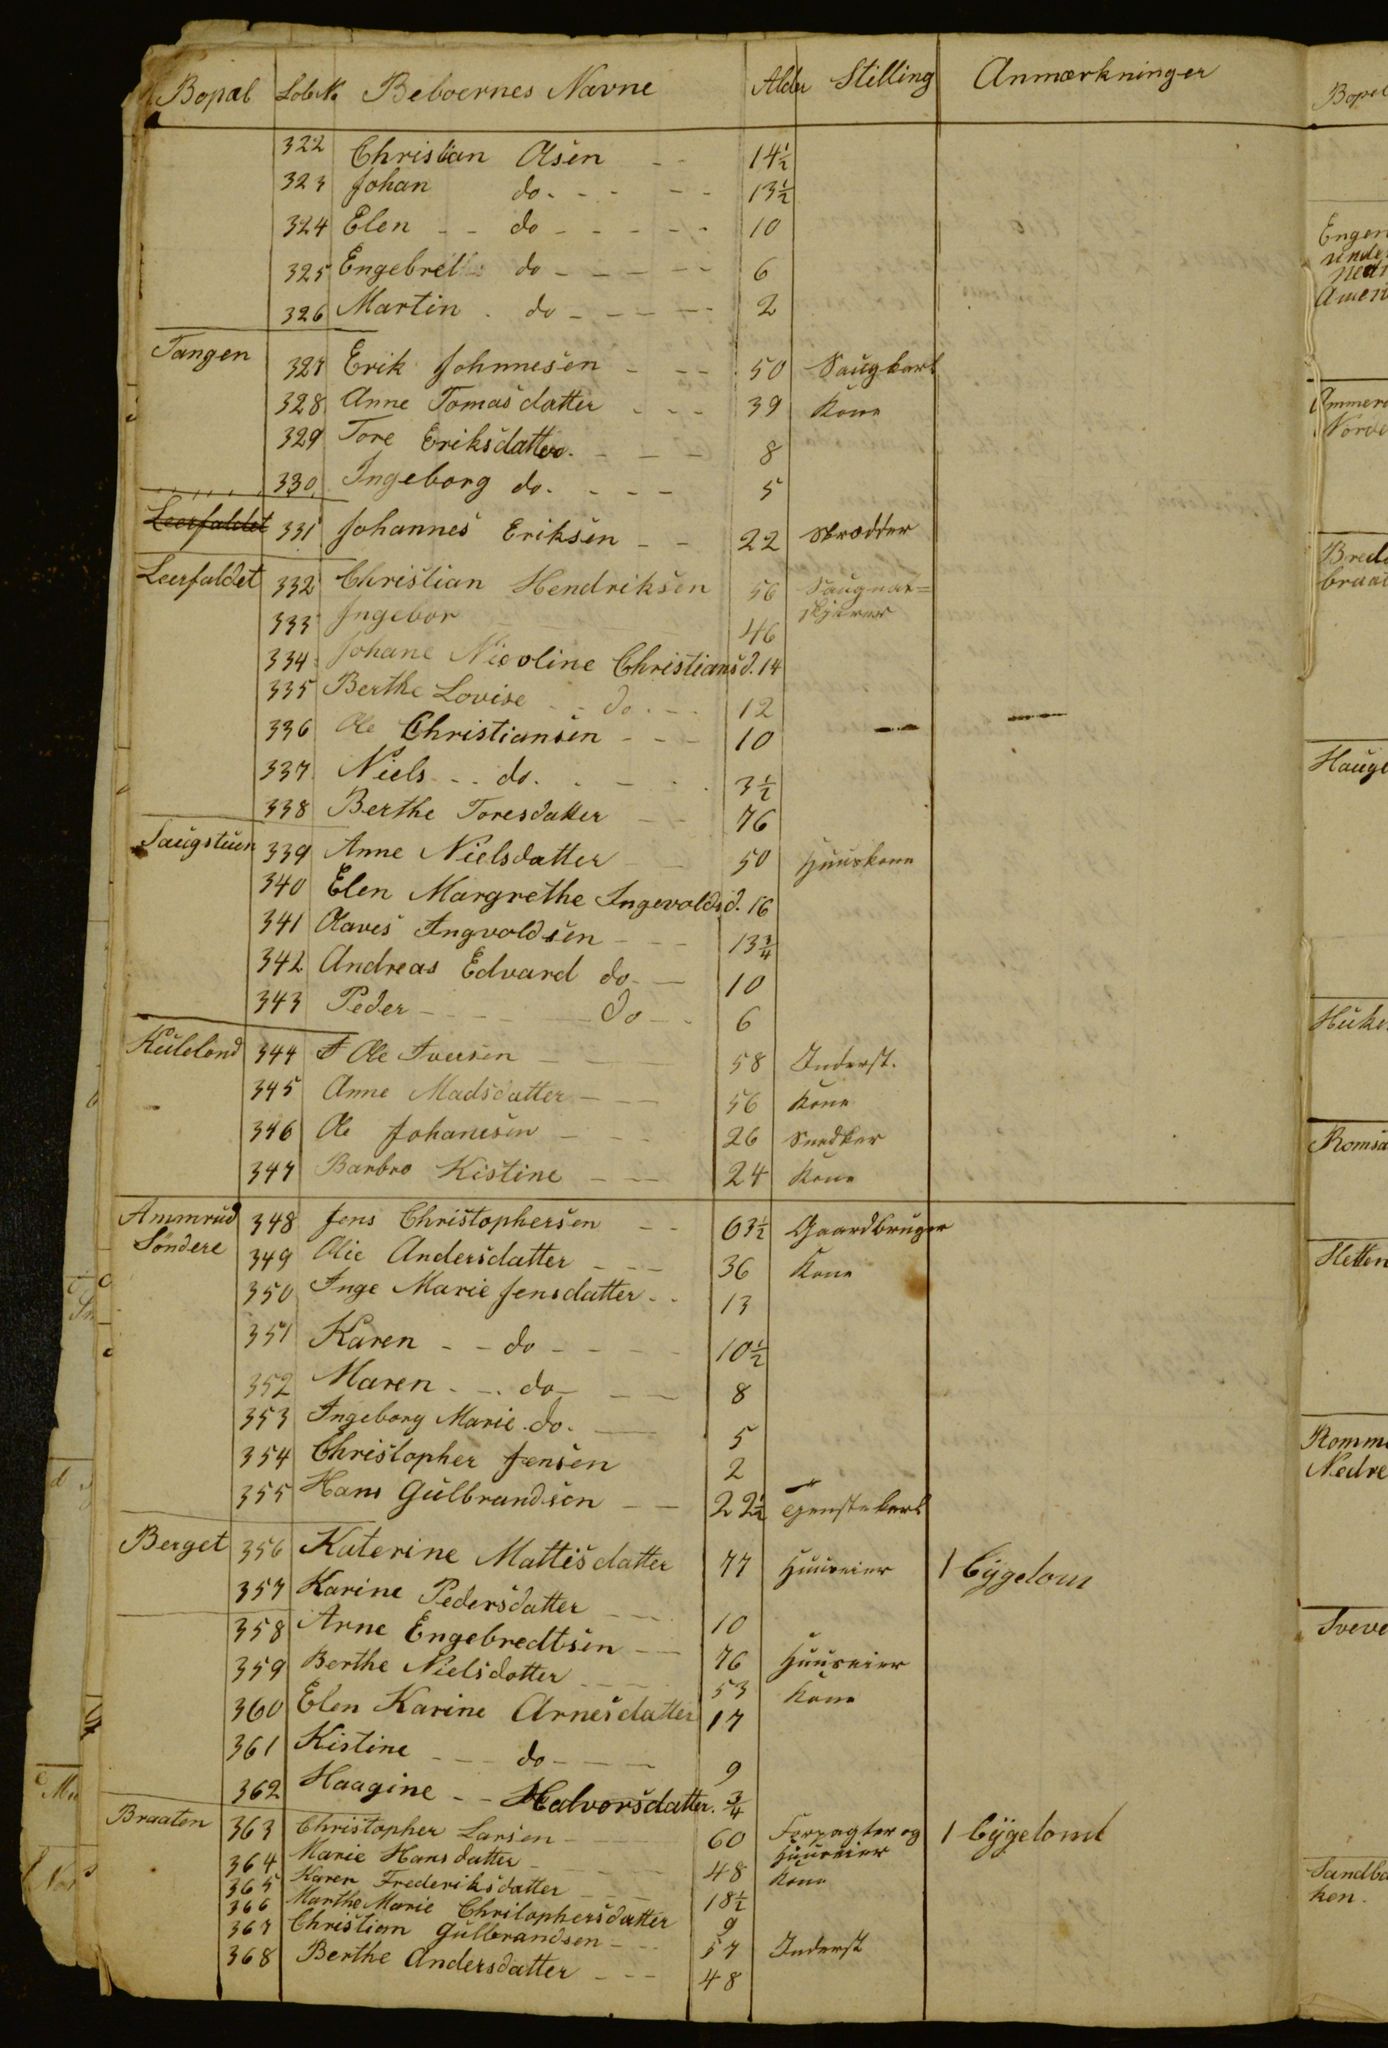 Bopæl Lob.No Beboernes Navne Alder Stilling Anmærkninger
322 Christian Olsen - - 14½
323 Johan do. - - - - 13½
324 Elen - - do - - - - - 10
325 Engebret do - - - - - 6
326 Martin . do - - - - - 2
Tangen 327 Erik Johnnesen - - - 50 Saugkarl
328 Anne Tomasdatter - - - 39 Kone
329 Tore Eriksdatter - - - - 8
330 Ingeborg do. - - - 5
Leerfaldet 331 Johannes Eriksen - - 22 Skrædder
Leerfaldet 332 Christian Hendriksen 56 Saugnat=
skjærer
333 Ingebor 46
334 Johane Nicoline Christiansd. 14
335 Berthe Lovise - - do. - - 12
336 Ole Christiansen - - - 10
337 Niels - - do. - - - 3½
338 Berthe Toresdatter - - 76
Saugstuen 339 Anne Nielsdatter - - 50 Huuskone
340 Elen Margrethe Ingevoldsd. 16
341 Olaves Ingvoldsen - - - 13¾
342 Andreas Edvard do - - 10
343 Peder - - - - do - - 6
344 Ole Iversen - - - 58 Inderst.
345 Anne Madsdatter - - - 56 Kone
346 Ole Johanesen - - - 26 Snedker
347 Barbro Kistine - - - 24 Kone
Ammrud 348 Jens Christophersen - - 63½ Gaardbruger
Söndere 349 Olie Andersdatter - - - 36 Kone
350 Inge Marie Jensdatter - - 13
351 Karen - - do - - - - 10½
352 Maren - - do - - - 8
353 Ingeborg Marie do. - - 5
354 Christopher Jensen 2
355 Hans Gulbrandsen - - 22½ Tjenstekarl
Berget 356 Katerine Mattisdatter 77 Huuseier 1 Bygelom
357 Karine Pedersdatter - - - 10
358 Arne Engebredtsen - - 76 Huuseier
359 Berthe Nielsdotter - - - - 53 Kone
360 Elen Karine Arnesdatter 17
361 Kistine - - - do - - - 9
362 Haagine - - Halvorsdatter. ¾
Braaten 363 Christopher Larsen - - - 60 Forpagter og 1 Bygelomt
Huuseier
364 Marie Hansdatter - - - - 48 Kone
365 Karen Frederiksdatter - - - 18½
366 Marthe Marie Chritophersdatter 9
367 Christian Gulbrandsen - - - 57 Inderst
368 Berthe Andersdatter - - - 48
Hauge
Sandba
ken.